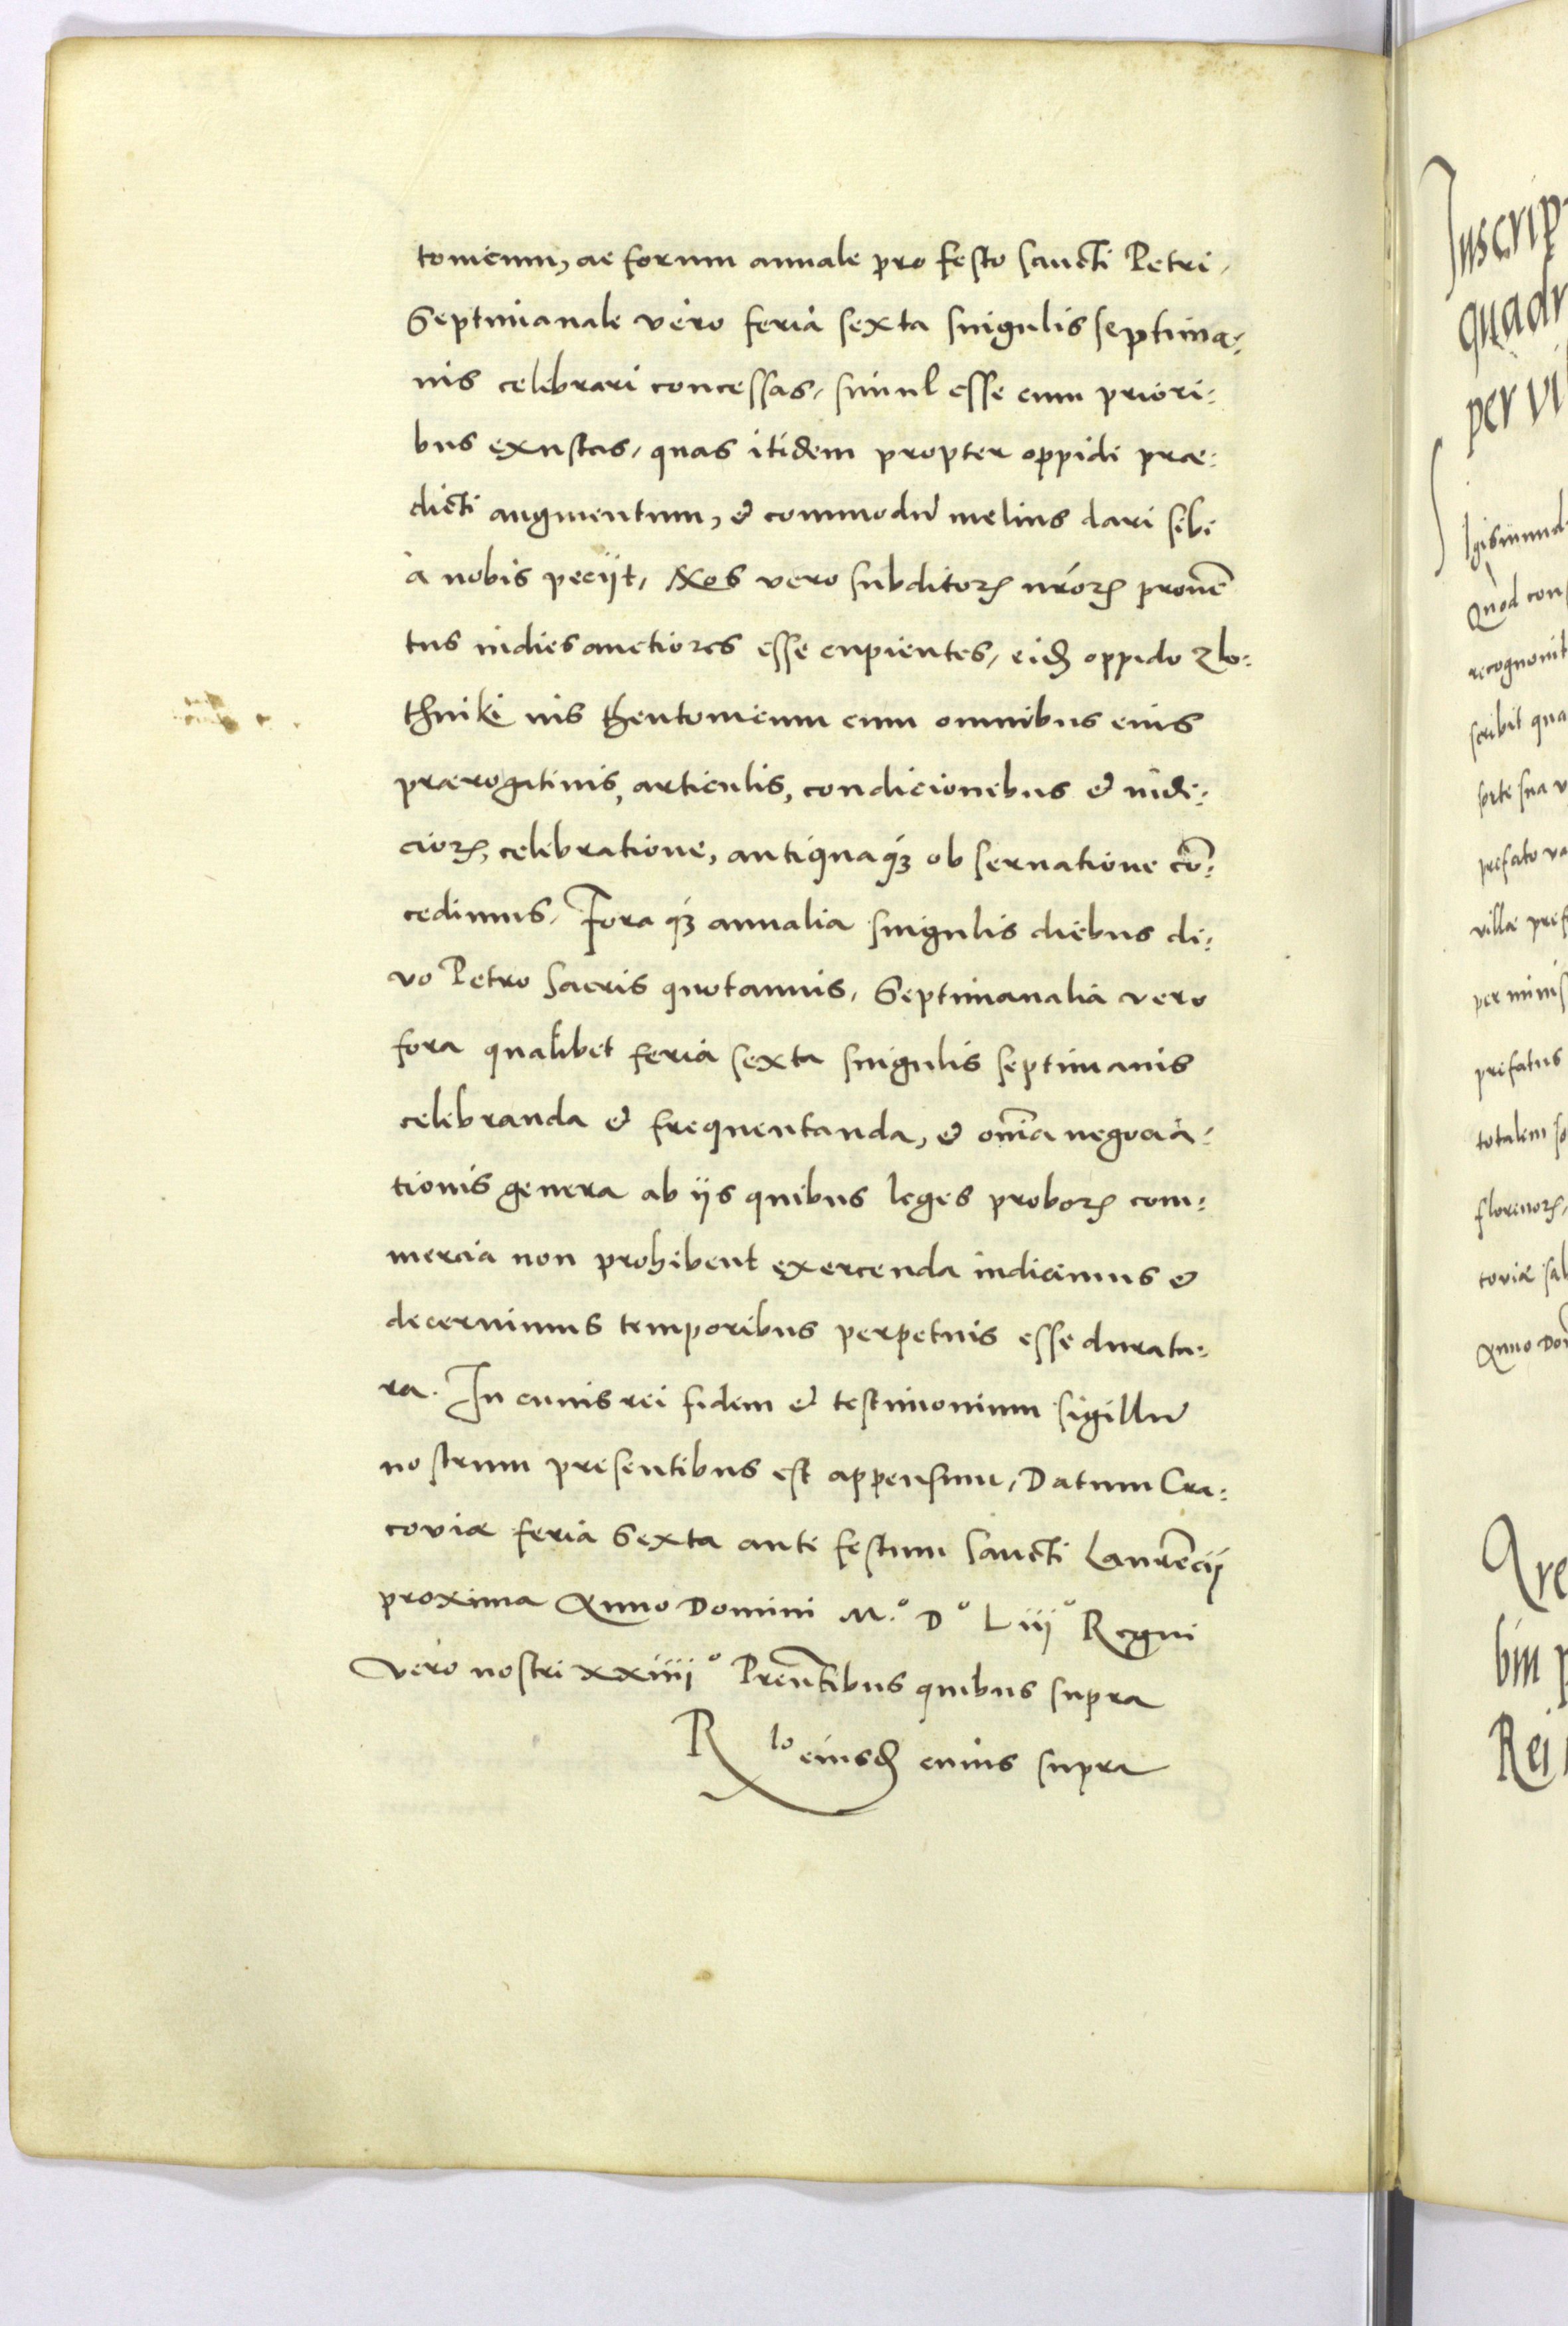 tonicum, ac forum annale pro festo Sancti Petri,
Septimanale vero feria sexta singulis septima:
nis celebrari concessas, simul esse cum priori:
bus exustas, quas itidem propter oppidi præ:
dicti augmentum, & commodū melius dari sibi
à nobis peciit, Nos vero subditorꝝ nr̄orꝝ prouē
tus indies auctiores esse cupientes, eidē oppido Zlo:
thniki ius theutonicum cum omnibus eius
prærogatiuis, articulis, condicionibus & iudi:
ciorꝝ, celebratione, antiquaqꝫ obseruatione cō:
cedimus. Fora qꝫ annalia singulis diebus di:
vo Petro Sacris quotannis, Septimanalia vero
fora qualibet feria sexta singulis septimanis
celebranda & frequentanda, & oīa negocia:
tionis genera ab iis quibus leges proborꝝ com:
mercia non prohibent exercenda indicimus &
decernimus temporibus perpetuis esse duratu:
ra. In cuius rei fidem & testimonium sigillū
nostrum presentibus est appensum, Datum Cra:
coviæ feria Sexta ante festum Sancti Laurēcij
proxima Anno Domini M.º Dº Liijº Regni
vero nostri xxiiiiº Prēntibus quibus supra
Rlo eiusdē cuius supra
Inscrip
quadr
per vil
Quod con
recognovit
scribit qua
sorte sua v
prefato va
villæ pref
per minis
prefatus
totalem so
florenorꝝ,
coviæ sal
Anno Dom
bin p
Rei